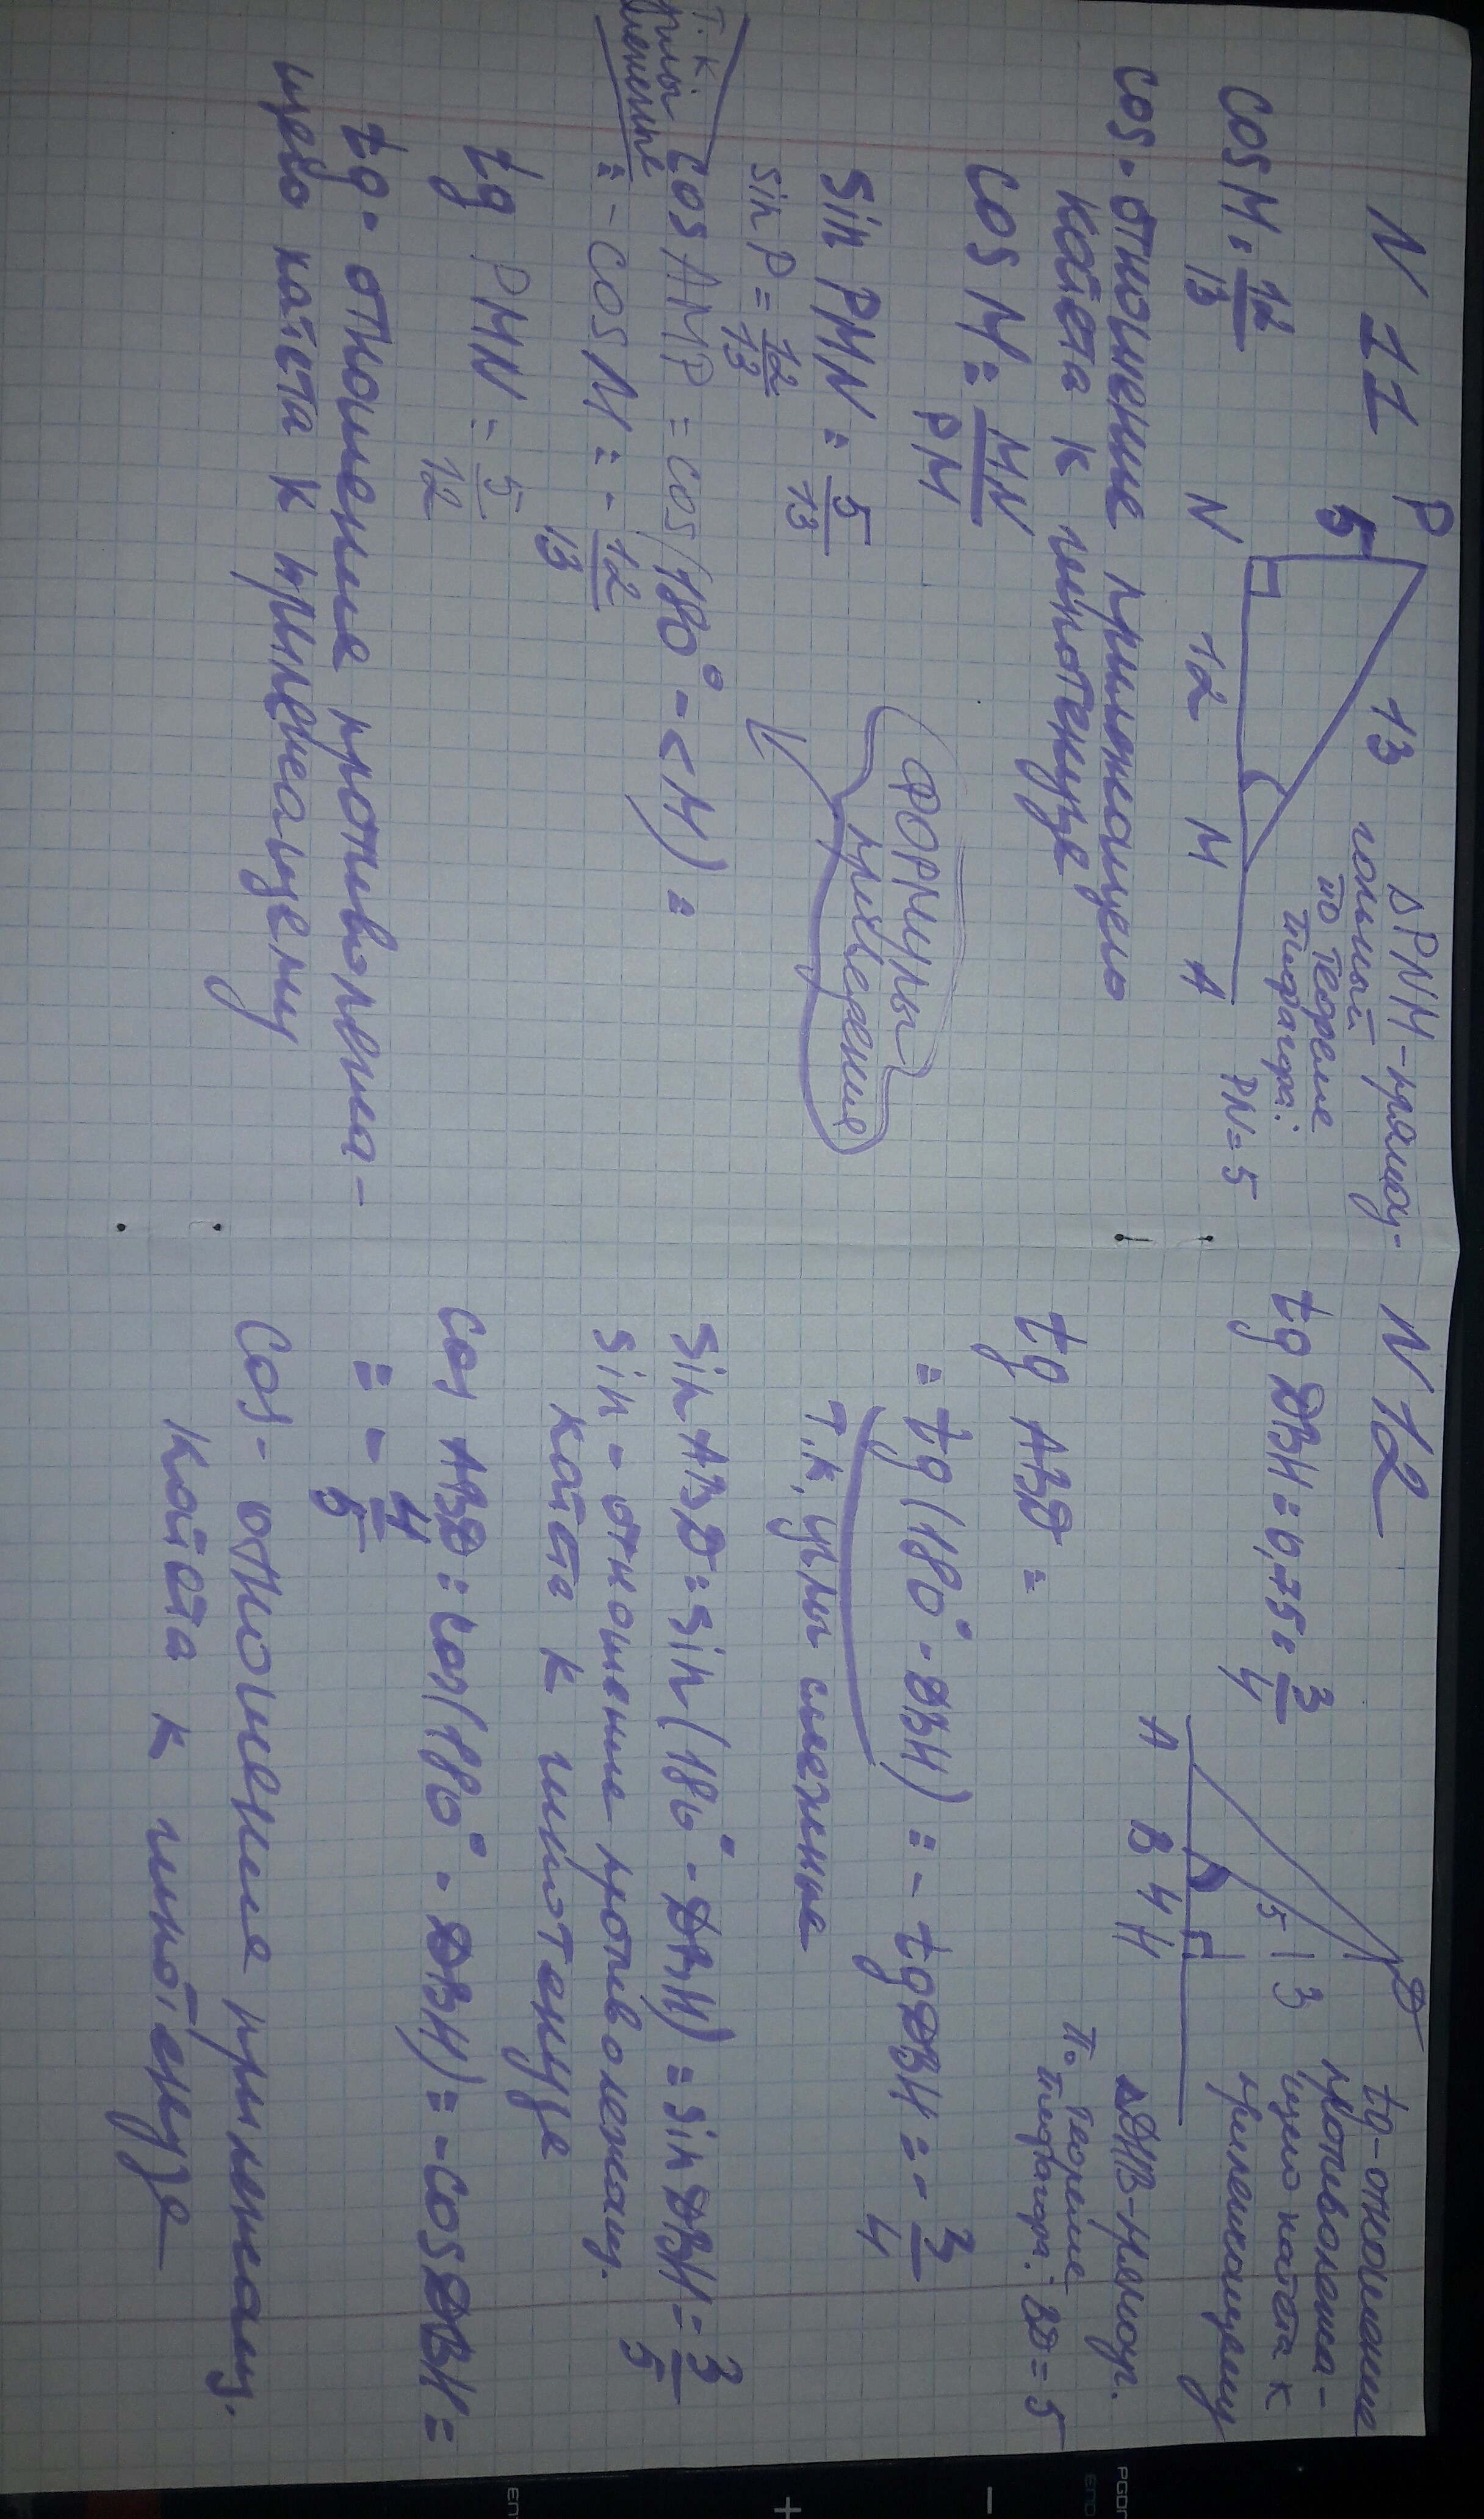 N 11
P
5
13
N
12
M
A
ΔPNM - прямоу-
гольный
по теореме
Пифагора:
PN = 5
cos M = 12/13
cos - отношение прилежащего
катета к гипотенузе
cos M = MN/PM
sin PMN = 5/13
sin P = 12/13
ФОРМУЛЫ
приведения
т.к
углы
смежные
cos AMP = cos(180° - <M) =
= - cos M = - 12/13
tg PMN = 5/12
tg - отношения противолежа-
щего катета к прилежащему
N 12
tg DBH = 0,75 = 3/4
A
B
4
H
5
3
D
tg - отношение
противолежа-
щего катета к
прилежащему
ΔDHB - прямоуг.
По теореме
Пифагора: BD = 5
tg ABD =
= tg(180° - DBH) = - tgDBH = - 3/4
т.к. углы смежные
sin ABD = sin(180° - DBH) = sin DBH = 3/5
sin - отношение противолежащ.
катета к гипотенузе
cos ABD = cos(180° - DBH) = - cos DBH =
= - 4/5
cos - отношения прилежащ.
катета к гипотенузе
PGDN
END
ENT
+
-